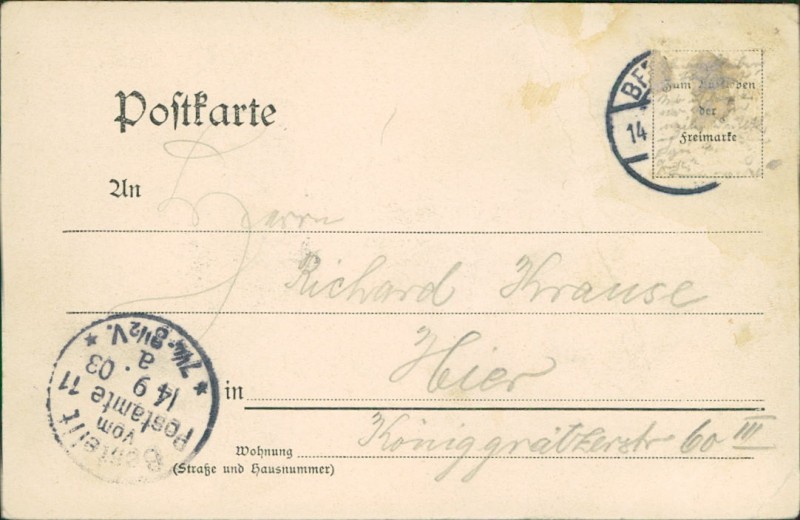 Postkarte
zum Aufkleben
der
Freimarke
14
An
Herrn
Richard Krause
in Hier
Wohnung Königgrätzerstr 60 III
(Straße und Hausnummer)
Bestellt
vom
Postamte 11
14 9 . 03
a
* 7¼-8½V. *